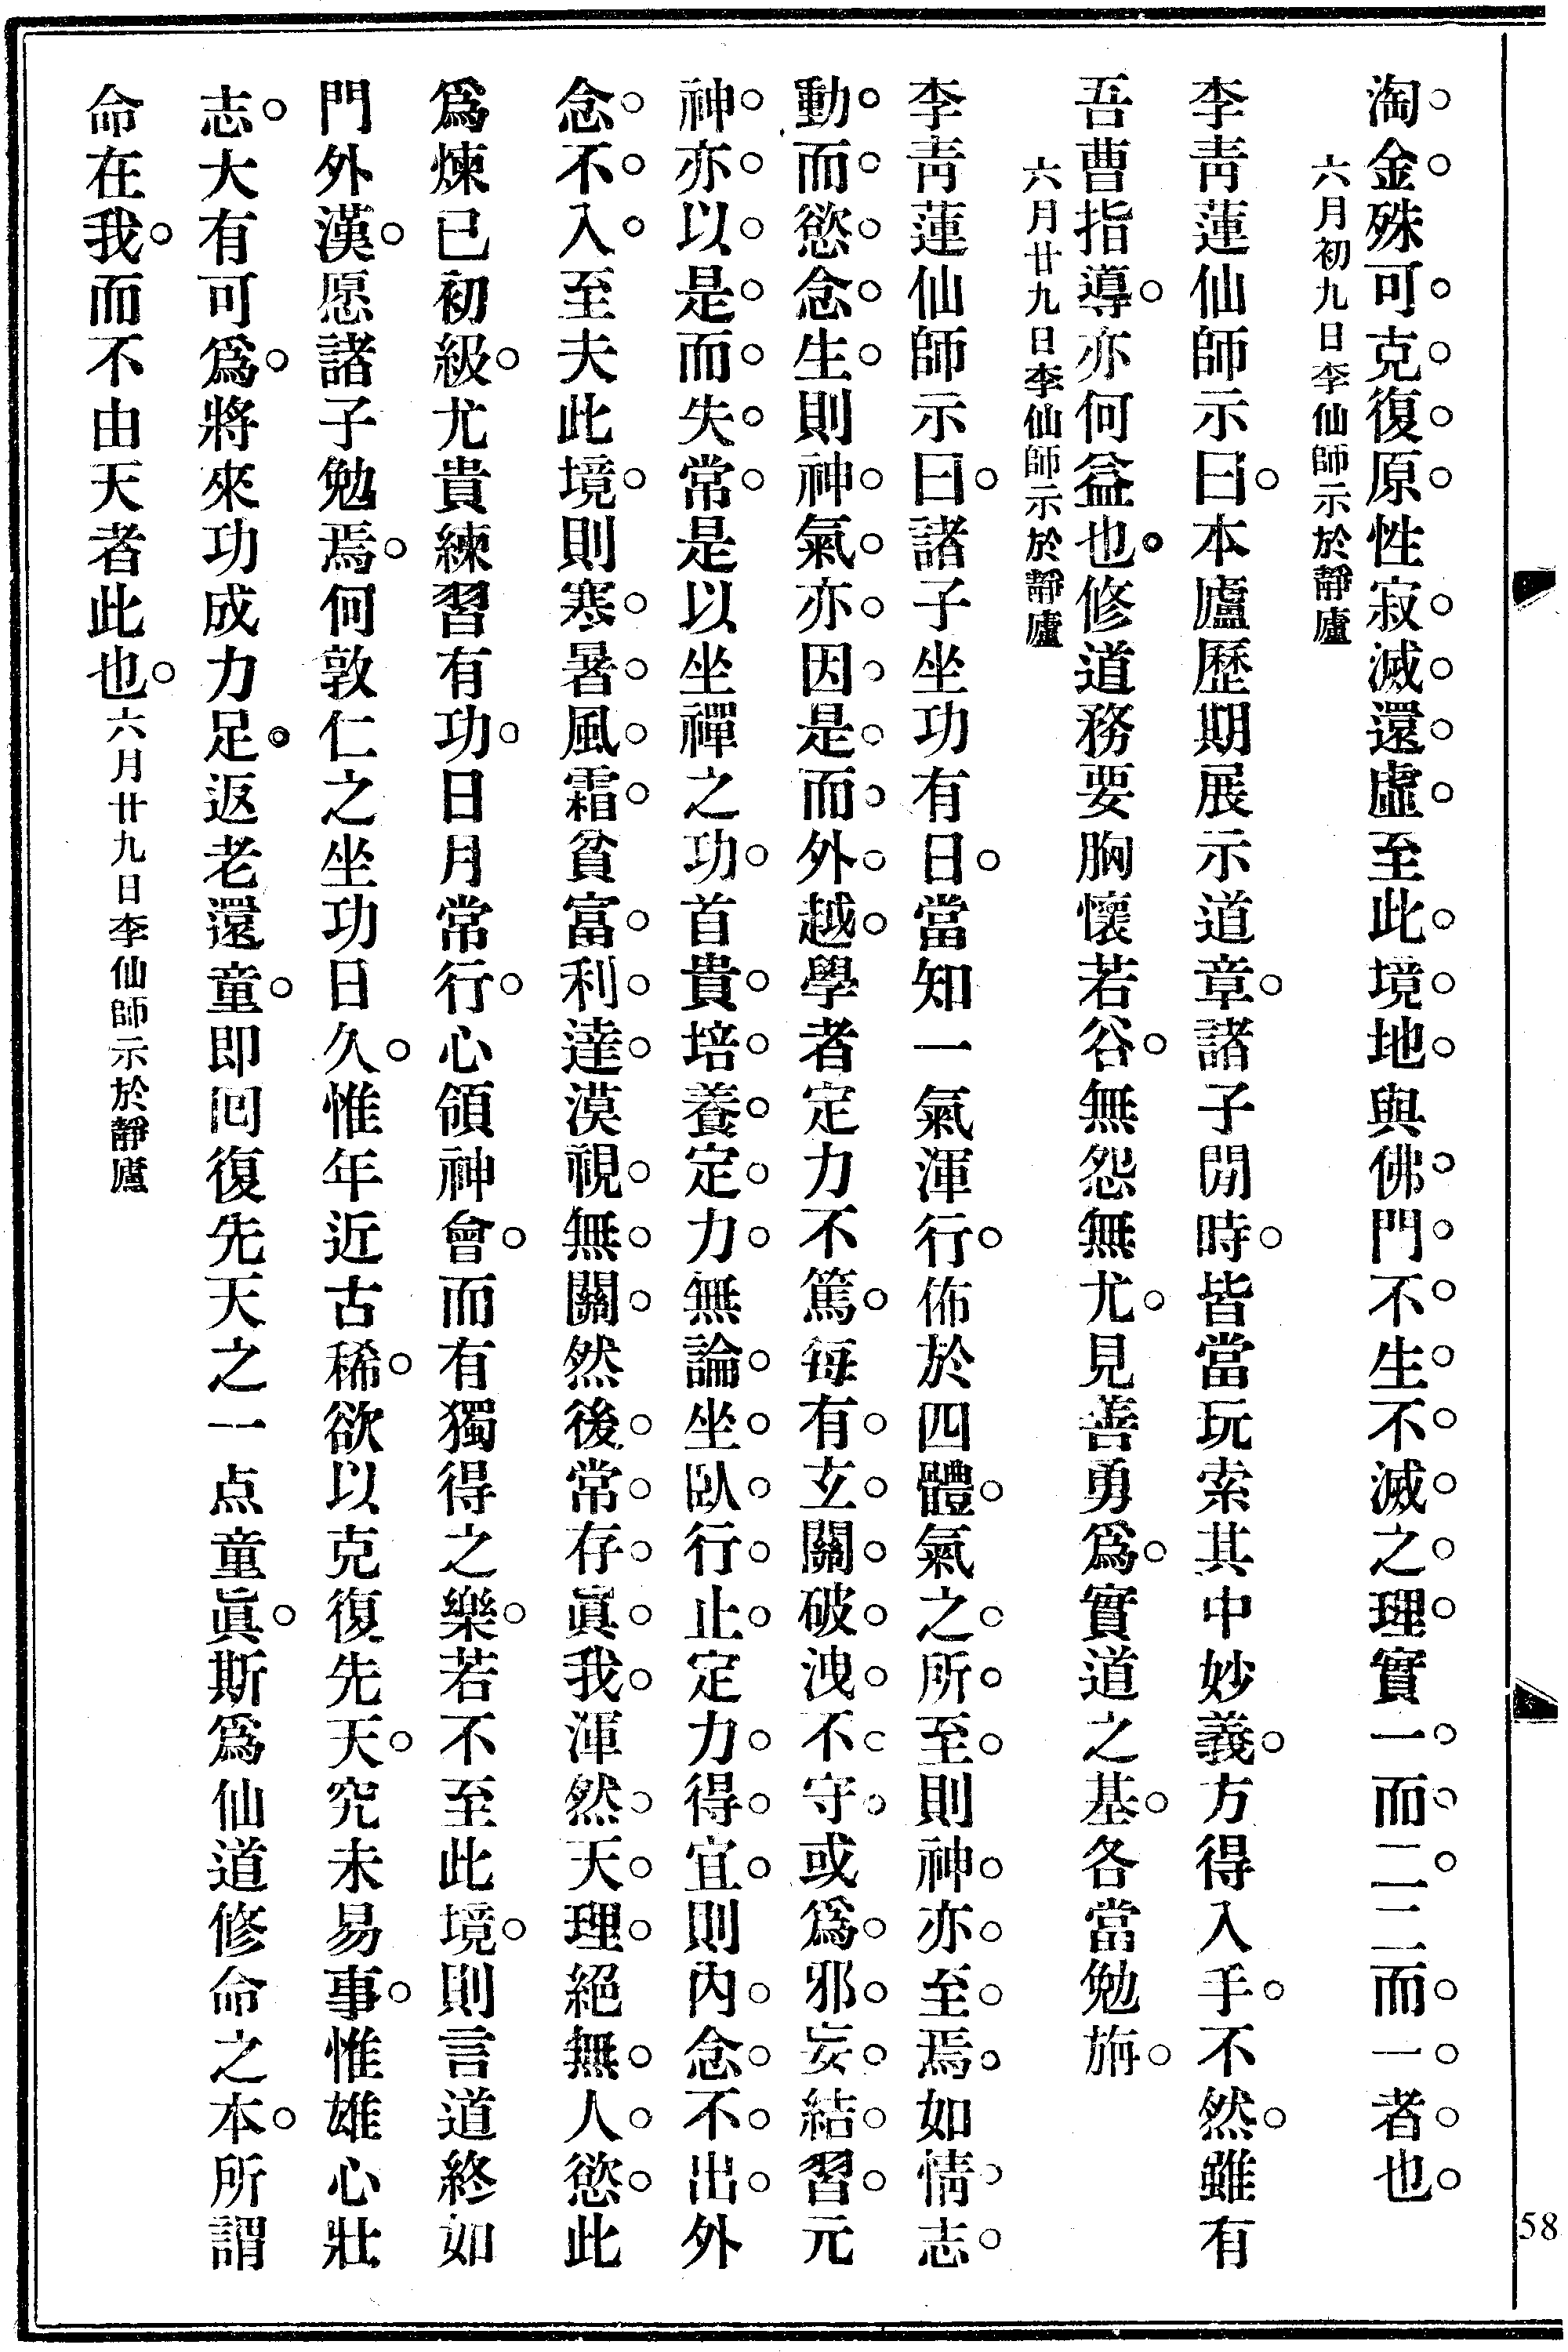 淘金殊可克復原性寂滅還虛至此境地與佛門不生不滅之理實一而二二而一者也
六月初九日李仙師示於靜廬
李靑蓮仙師示曰本廬歷期展示道章諸子閒時皆當玩索其中妙義方得入手不然雖有
吾曹指導亦何益也修道務要胸懷若谷無怨無尤見善勇爲實道之基各當勉旃
六月廿九日李仙師示於靜廬
李靑蓮仙師示曰諸子坐功有日當知一氣渾行佈於四體氣之所至則神亦至焉如情志
動而慾念生則神氣亦因是而外越學者定力不篤每有玄關破洩不守或爲邪妄結習元
神亦以是而失常是以坐禪之功首貴培養定力無論坐臥行止定力得宜則內念不出外
念不入至夫此境則寒暑風霜貧富利達漠視無關然後常存眞我渾然天理絕無人慾此
爲煉已初級尤貴練習有功日月常行心領神會而有獨得之樂若不至此境則言道終如
門外漢愿諸子勉焉何敦仁之坐功日久惟年近古稀欲以克復先天究未易事惟雄心壯
志大有可爲將來功成力足返老還童即囘復先天之一点童眞斯爲仙道修命之本所謂
命在我而不由天者此也六月廿九日李仙師示於靜廬
58